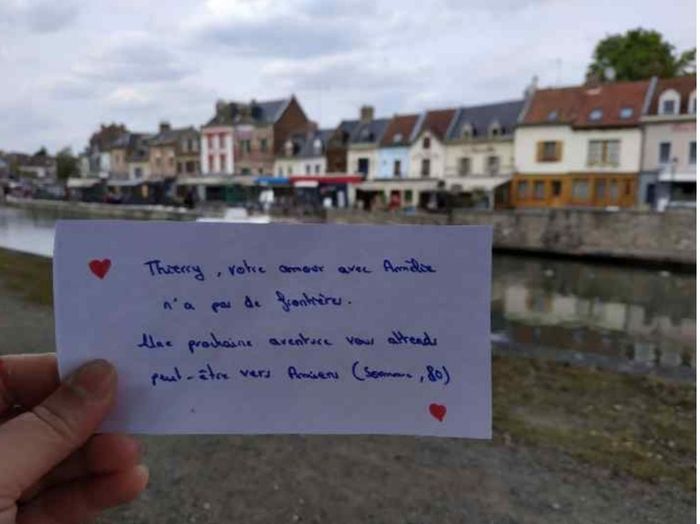 Thierry, votre amour avec Amélie
n'a pas de frontières.
Une prochaine aventure vous attends
peut-être vers Amiens (Somme, 80)